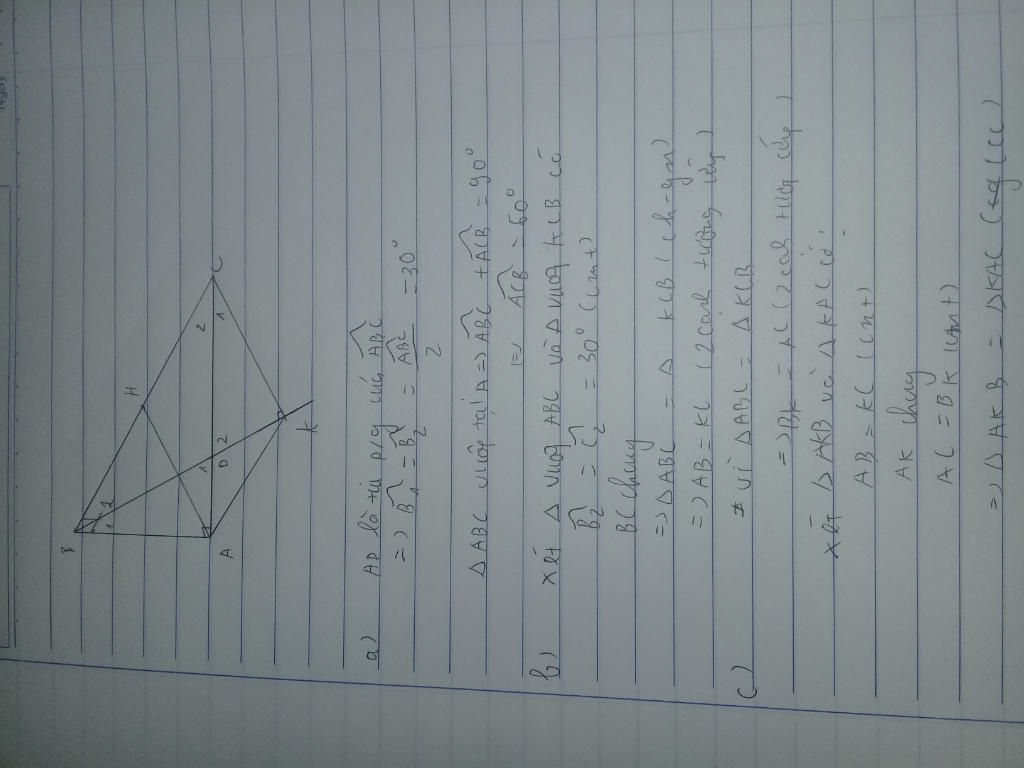 B
H
2
C
1
1
2
1
D
2
A
K
a) AP là tia p/g của ABC
=> B1 = B2 = ABC / 2 = 30°
Δ ABC vuông tại A => ABC + ACB = 90°
(=) ACB = 60°
b) xét Δ vuông ABC và Δ vuông KCB có
B2 = C2 = 30° (cmt)
BC chung
=> Δ ABC = Δ KCB (ch-gn)
=> AB = KC (2 cạnh tương ứng)
c) vì Δ ABC = Δ KCB
=> BK = AC (2 cạnh
xét Δ AKB và Δ KAC có
AB = KC (cmt)
AK chung
AC = BK (cmt)
=> Δ AKB = Δ KAC (CCC)